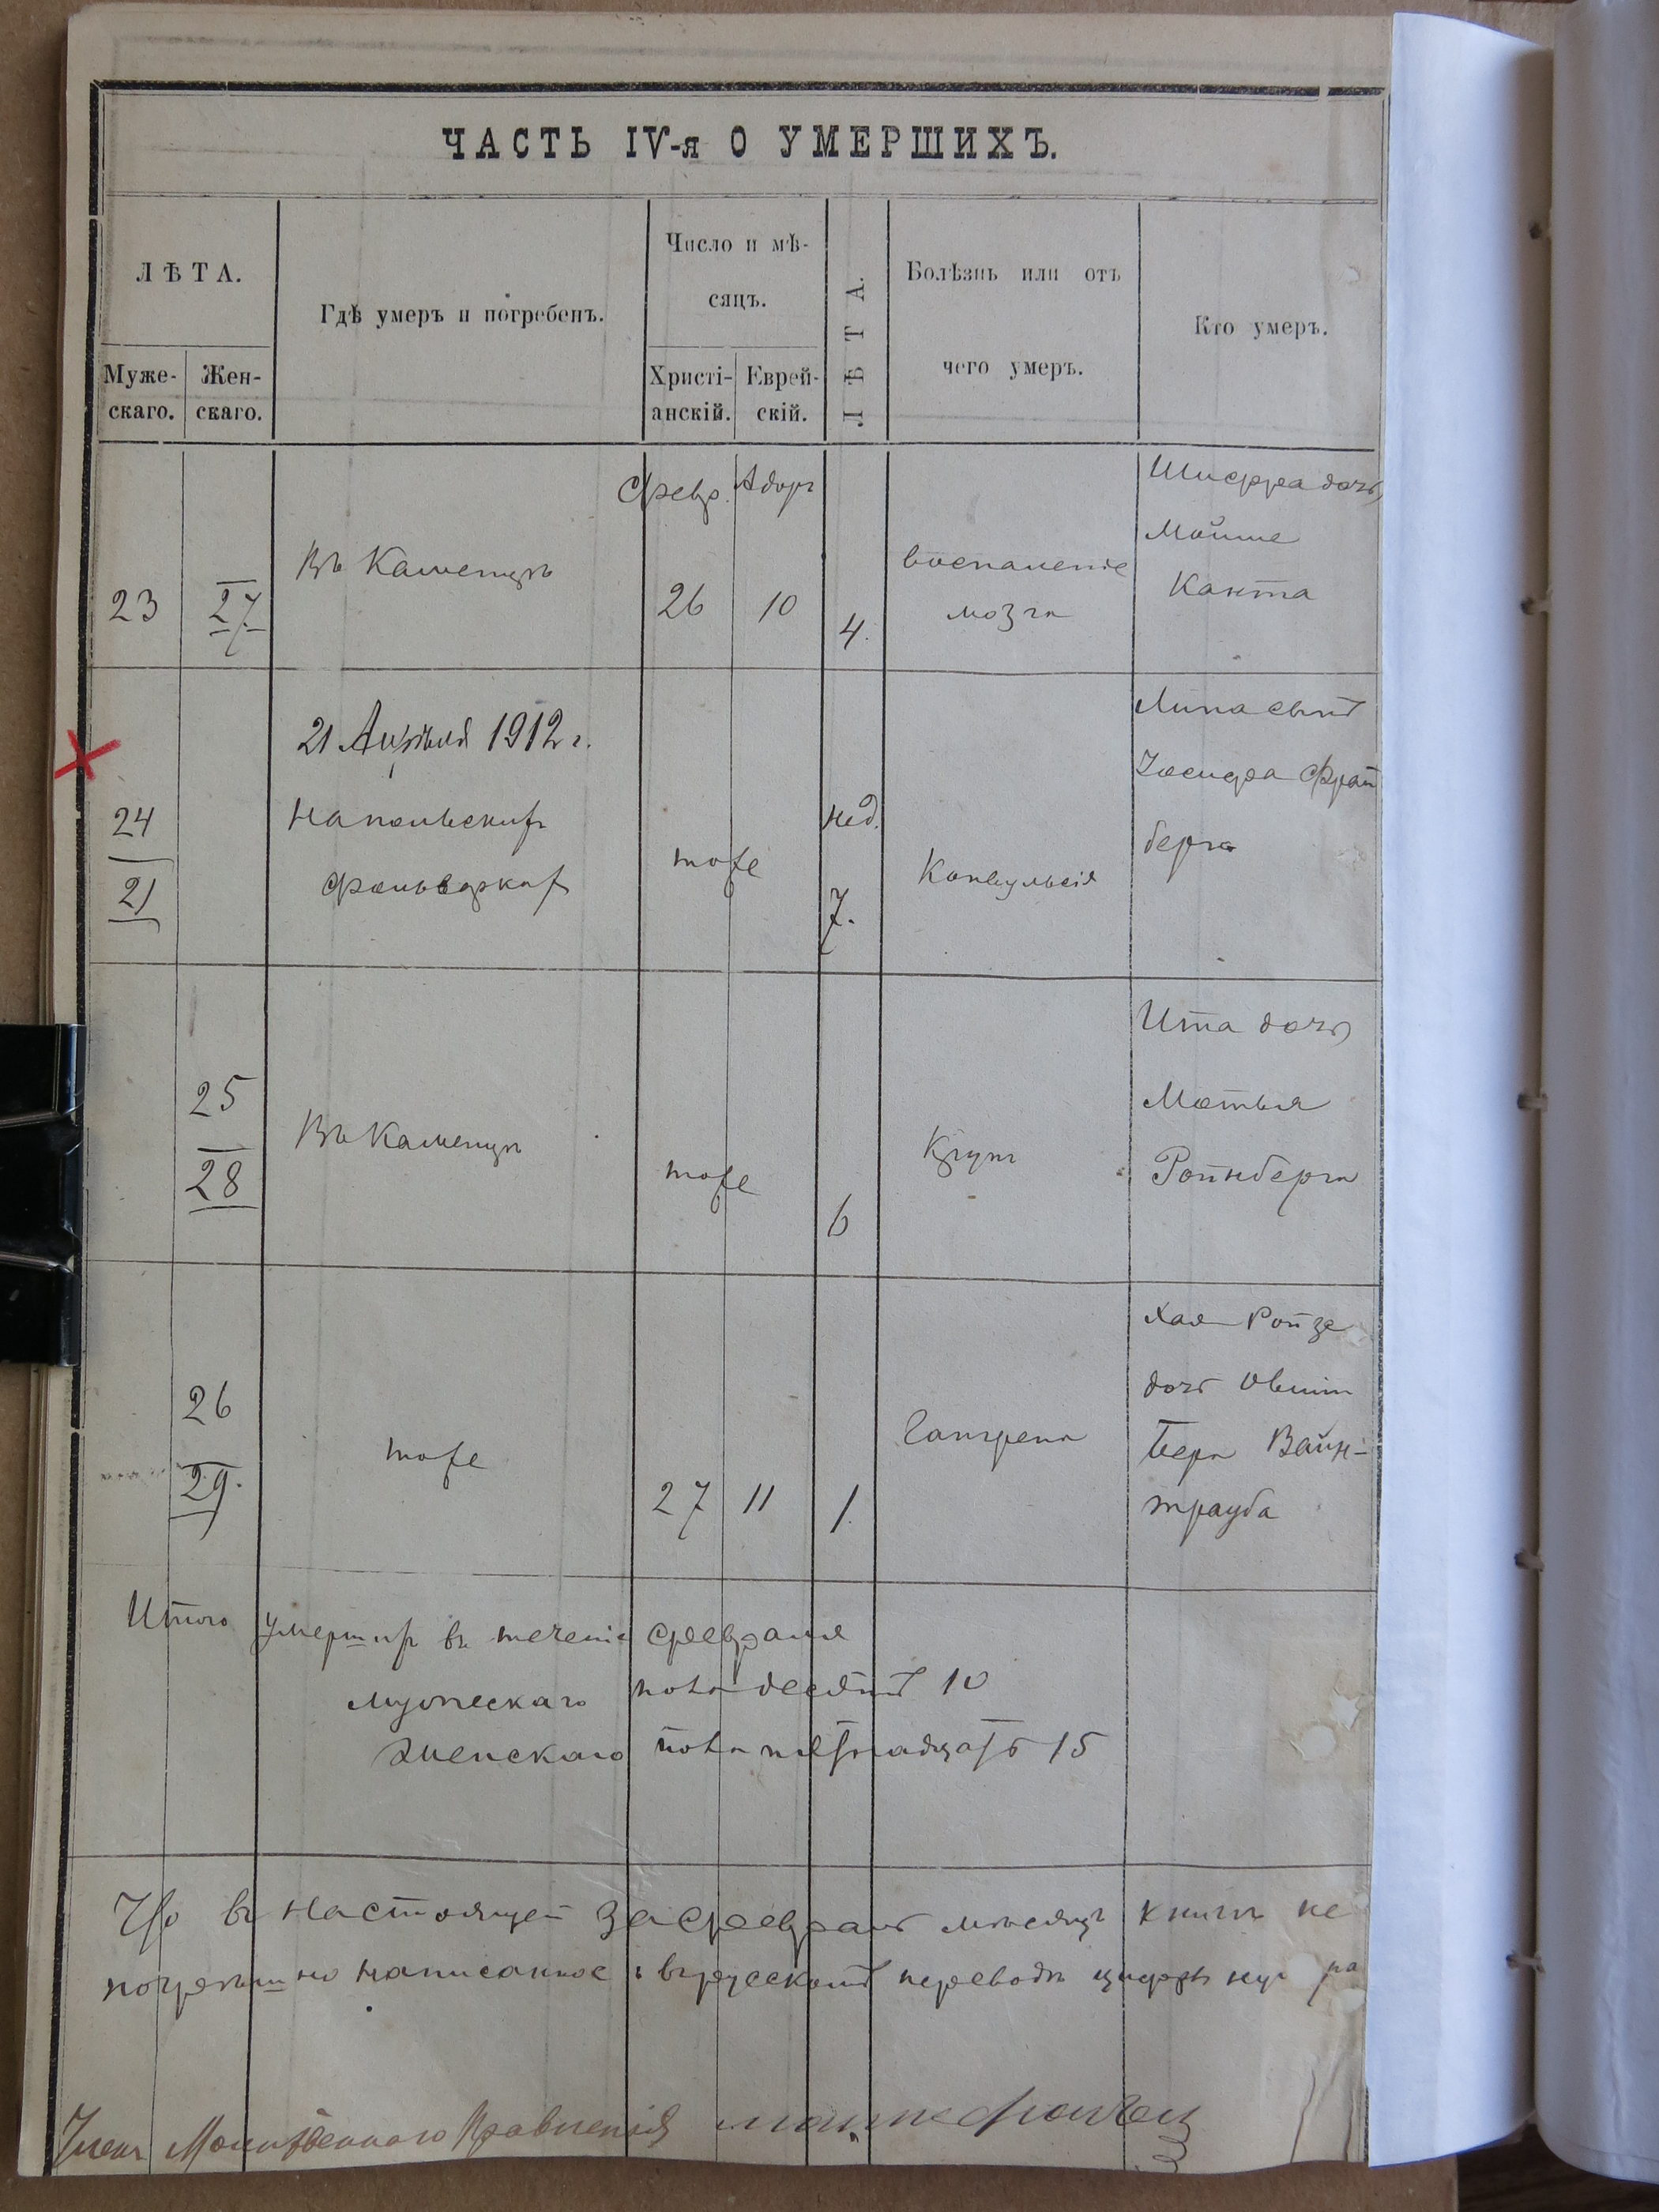 ЧАСТЬ IV-я О УМЕРШИХЪ.
ЛѢТА.
Муже-
скаго.
Жен-
скаго.
Гдѣ умеръ и погребенъ.
Число и мѣ-
сяцъ.
Христі-
анскій.
Еврей-
скій.
ЛѢТА.
Болѣзнь или отъ
чего умеръ.
Кто умеръ.
Февр. Адоръ
23
27
Въ Каменцѣ
26
10
4.
воспаленіе
мозга
Шифра дочь
Мойше
Канта
24
21
21 Апрѣля 1912 г.
фольваркахъ
тоже
нед.
7.
Конвульсія
Липа сынъ
Іосифа
берга
25
28
Въ Каменцѣ
тоже
6
Крупъ
Ита дочь
Мотья
Ройнберга
26
29.
тоже
27
11
1.
Гангрена
Хая Ройзе
дочь
Бера Вайн-
трауба
Итого умершихъ въ теченіе февраля
мужескаго пола десять 10
женскаго пола пятнадцать 15
Что въ настоящей за февраль мѣсяцъ книгѣ не
погрѣшно написанное въ русскомъ переводѣ
Членъ Молитвеннаго Правленія